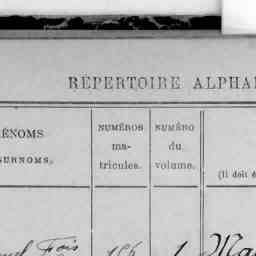 RÉPERTOIRE ALPHA
ÉNOMS
SURNOMS.
NUMÉROS
ma-
tricules.
NUMÉRO
du
volume.
(Il doit ê
Fois
1
Ma